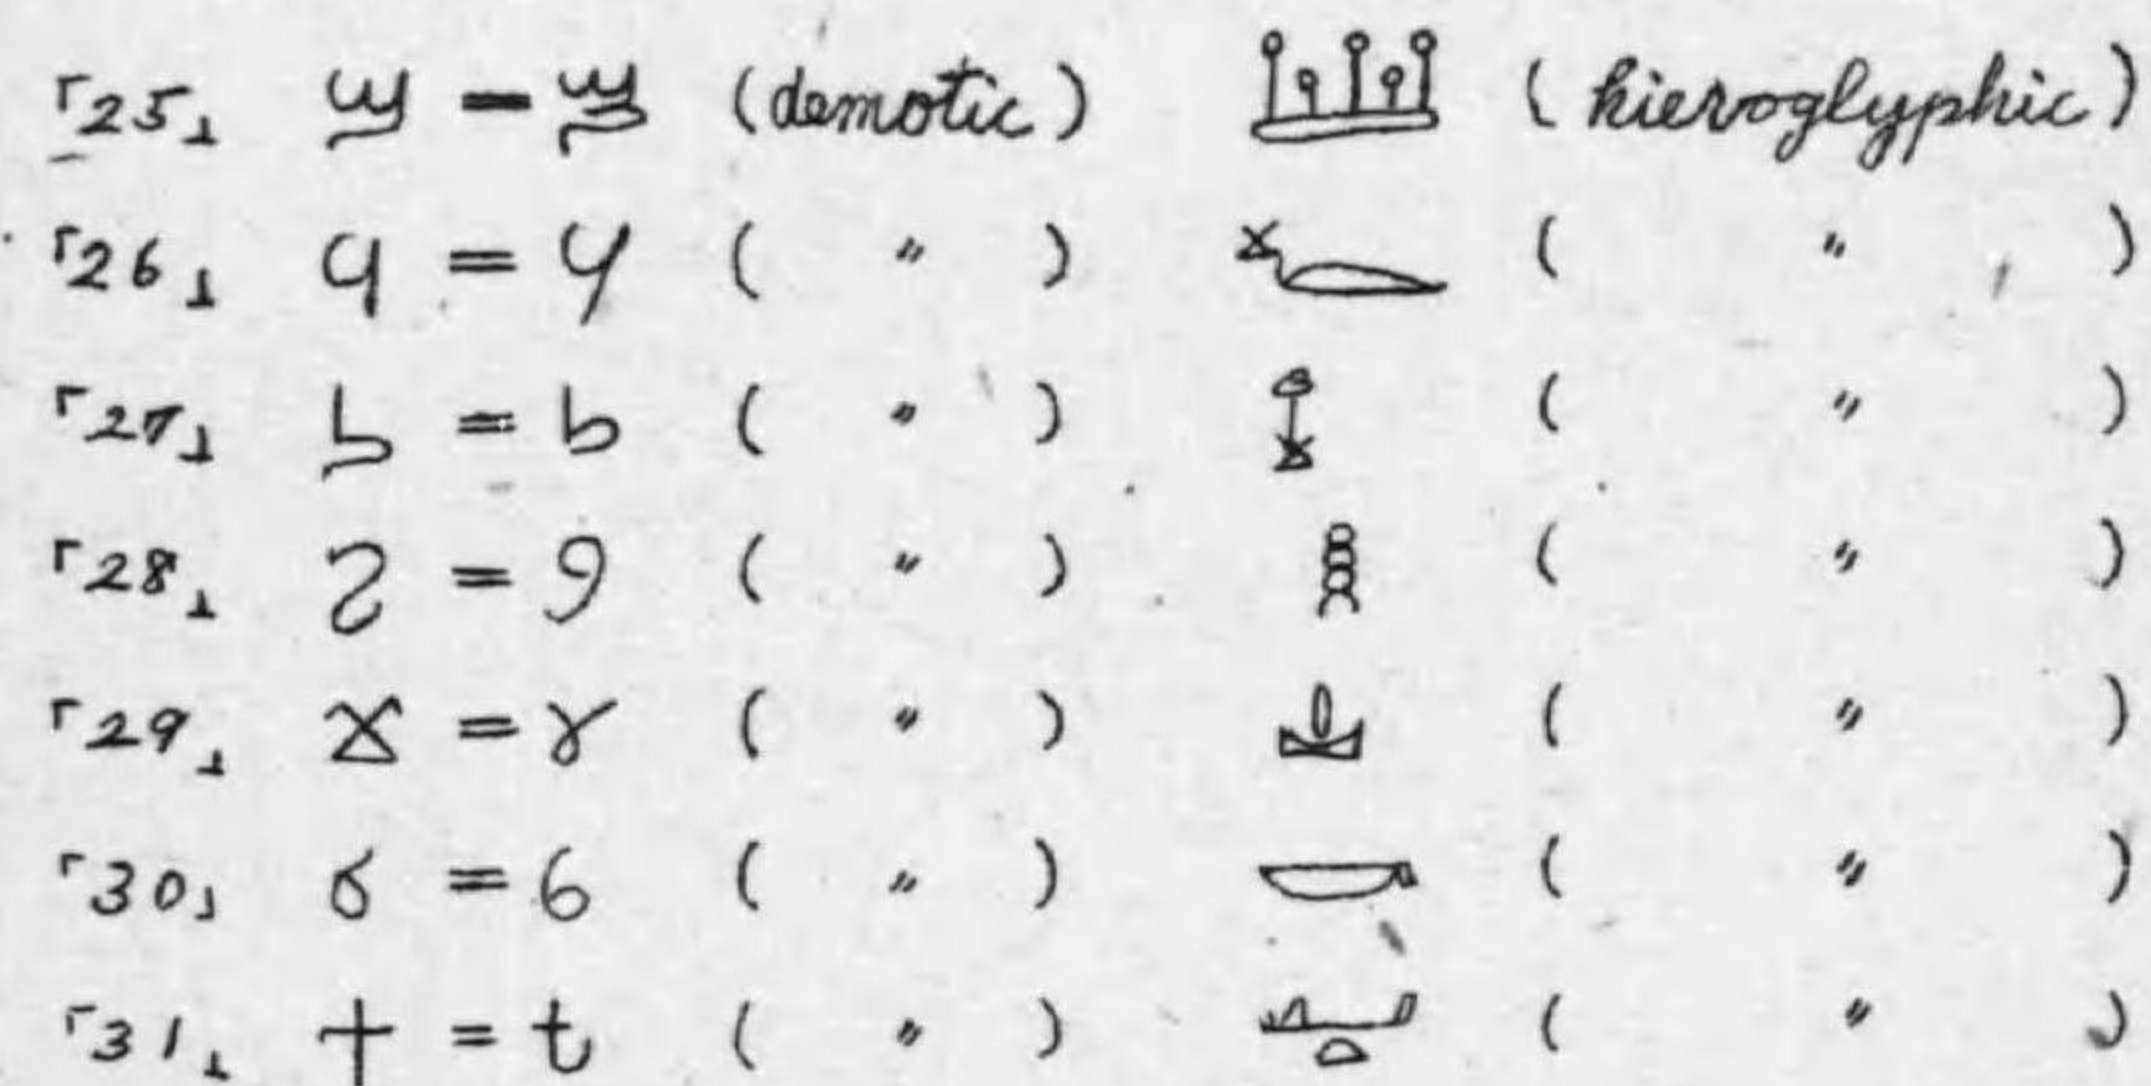 「25」 ϣ = ϣ (demotic) 𓆷 (hieroglyphic)
「26」 ϥ = ϥ ( 〃 ) 𓆑 ( 〃 )
「27」 ϧ = ϧ ( 〃 ) 𓆼 ( 〃 )
「28」 ϩ = 9 ( 〃 ) 𓎛 ( 〃 )
「29」 ϫ = ɤ ( 〃 ) 𓊌 ( 〃 )
「30」 ϭ = 6 ( 〃 ) 𓎡 ( 〃 )
「31」 ϯ = t ( 〃 ) 𓂞𓏏 ( 〃 )